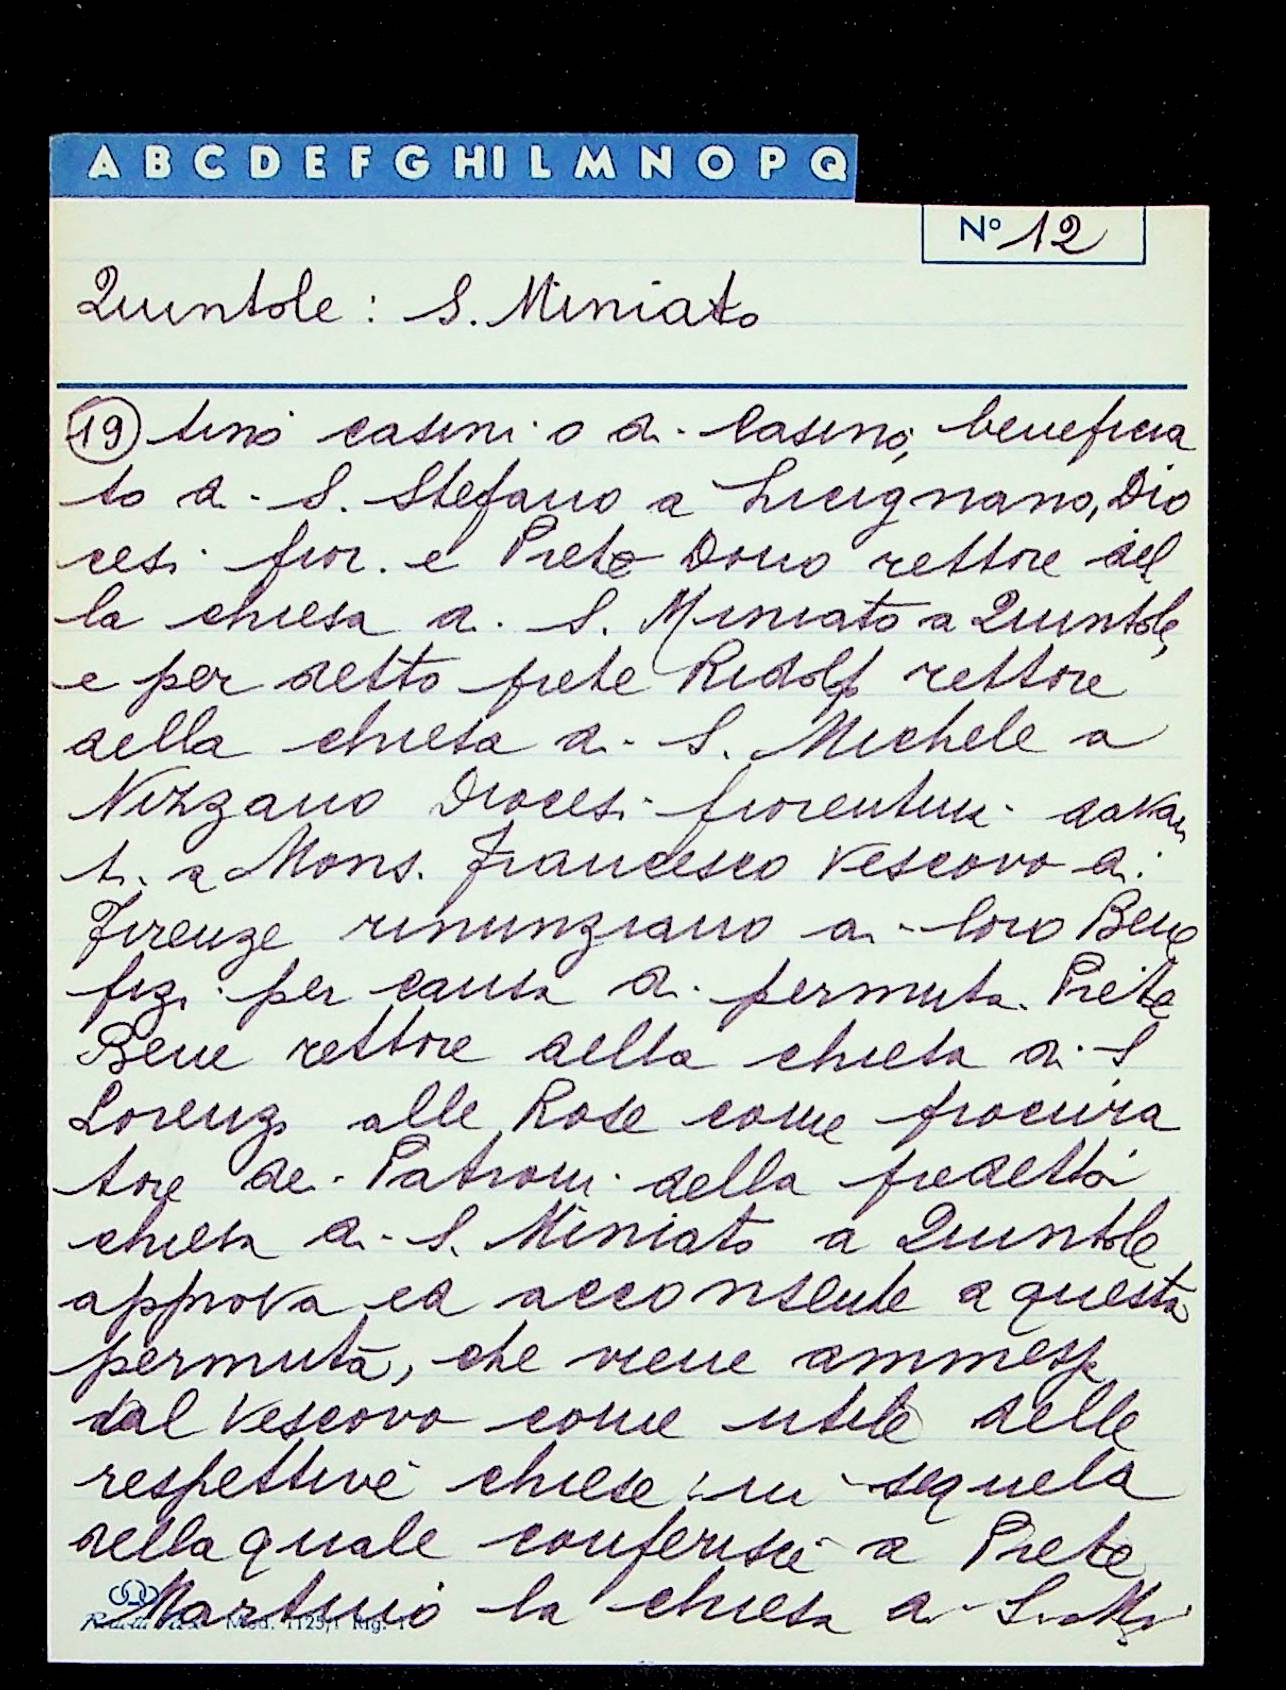 A B C D E F G HI L M N O P Q
Nº 12
Quintole: S. Miniato
19 tino casini o di Casino, beneficia
to di S. Stefano a Lucignano, Dio
cesi fior. e Prete Dono rettore del
la chiesa di S. Miniato a Quintole,
e per detto prete Ridolfo rettore
della chiesa di S. Michele a
Nizzano Diocesi fiorentina davan
ti a Mons. Francesco Vescovo di
Firenze rinunziano ai loro Bene
fizi per causa di permuta. Prete
Bene rettore della chiesa di S.
Lorenzo alle Rose come procura
tore dei Patroni della predetta
chiesa di S. Miniato a Quintole
approva ed acconsente a questa
permuta, che viene ammessa
dal Vescovo come utile delle
respettive chiese: in sequela
della quale conferisce a Prete
Martino la chiesa di S. Mi
Mod. 1125/1 Rig. 1